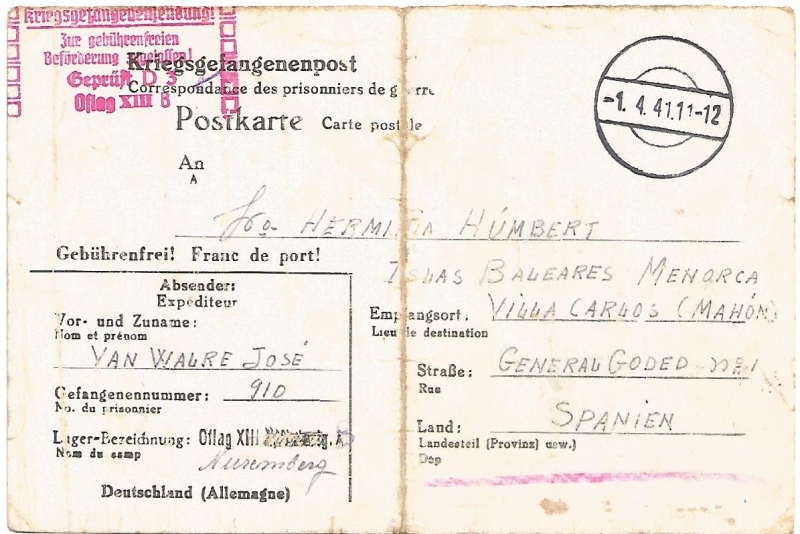 Kriegsgefangenensendung!
Zur gebührenfreien
Beförderung zugelassen!
Geprüft D 3
Oflag XIII B
Kriegsgefangenenpost
Correspondance des prisonniers de guerre
Postkarte Carte postale
-1. 4. 41.11-12
An
A
HERMINIA HÚMBERT
Gebührenfrei! Franc de port!
ISLAS BALEARES MENORCA
Absender:
Expéditeur
Empfangsort: VILLA CARLOS (MAHÓN)
Lieu de destination
Vor- und Zuname:
Nom et prénom
VAN WALRE JOSÉ
Straße: GENERAL GODED
Rue
Gefangenennummer: 910
No. du prisonnier
Land: SPANIEN
Landesteil (Provinz) usw.)
Dep
Lager-Bezeichnung: Oflag XIII
Nom du camp
Nuremberg
Deutschland (Allemagne)